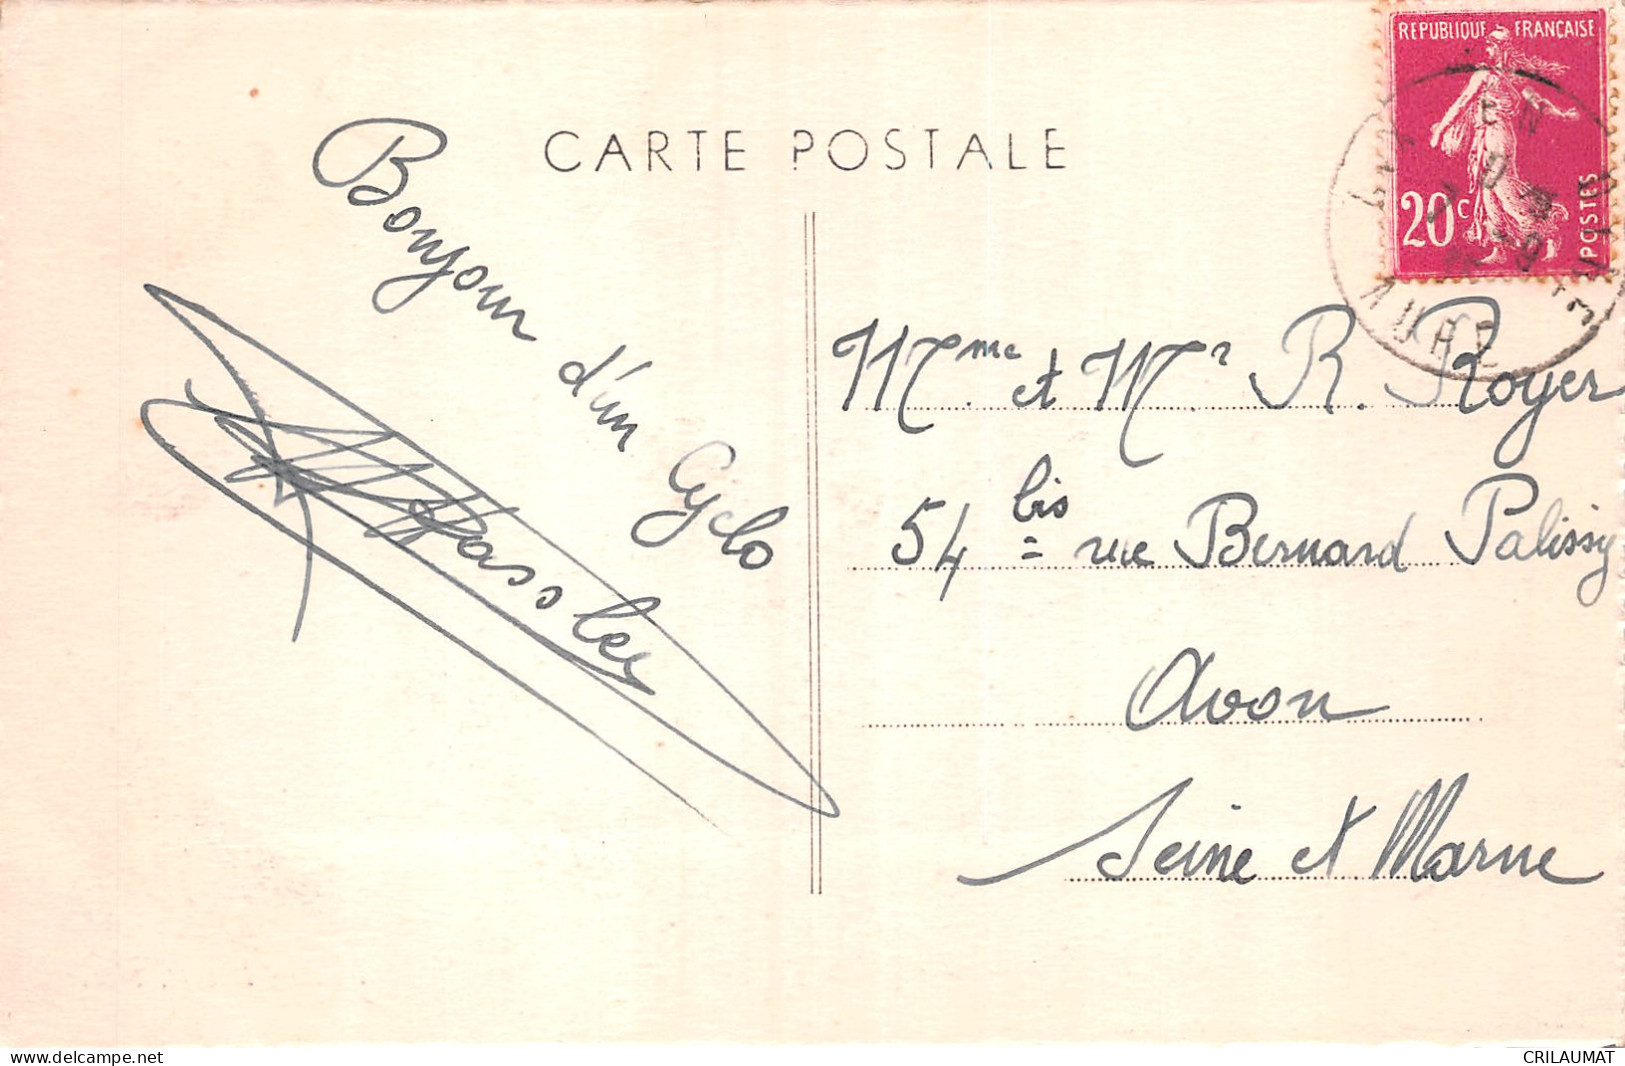 REPUBLIQUE FRANÇAISE
20c
POSTES
CARTE POSTALE
Bonjour d'un Cyclo
Mme. et Mr R. Royer
54 bis rue Bernard Palissy
Avon
Seine et Marne
www.delcampe.net
CRILAUMAT